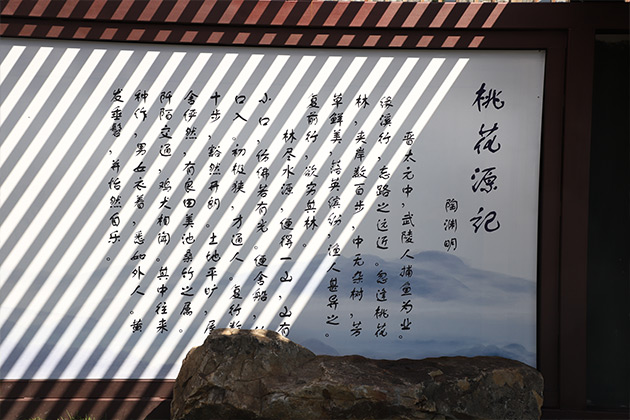 桃花源記
陶渊明
晋太元中，武陵人捕鱼为业。
缘溪行，忘路之远近。忽逢桃花
林，夹岸数百步，中无杂树，芳
草鲜美，落英缤纷，渔人甚异之。
复前行，欲穷其林。
林尽水源，便得一山，山有
小口，仿佛若有光。便舍船，
口入。初极狭，才通人。复行数
十步，豁然开朗。土地平旷，屋
舍俨然，有良田美池桑竹之属。
阡陌交通，鸡犬相闻。其中往来
种作，男女衣着，悉如外人。黄
发垂髫，并怡然自乐。